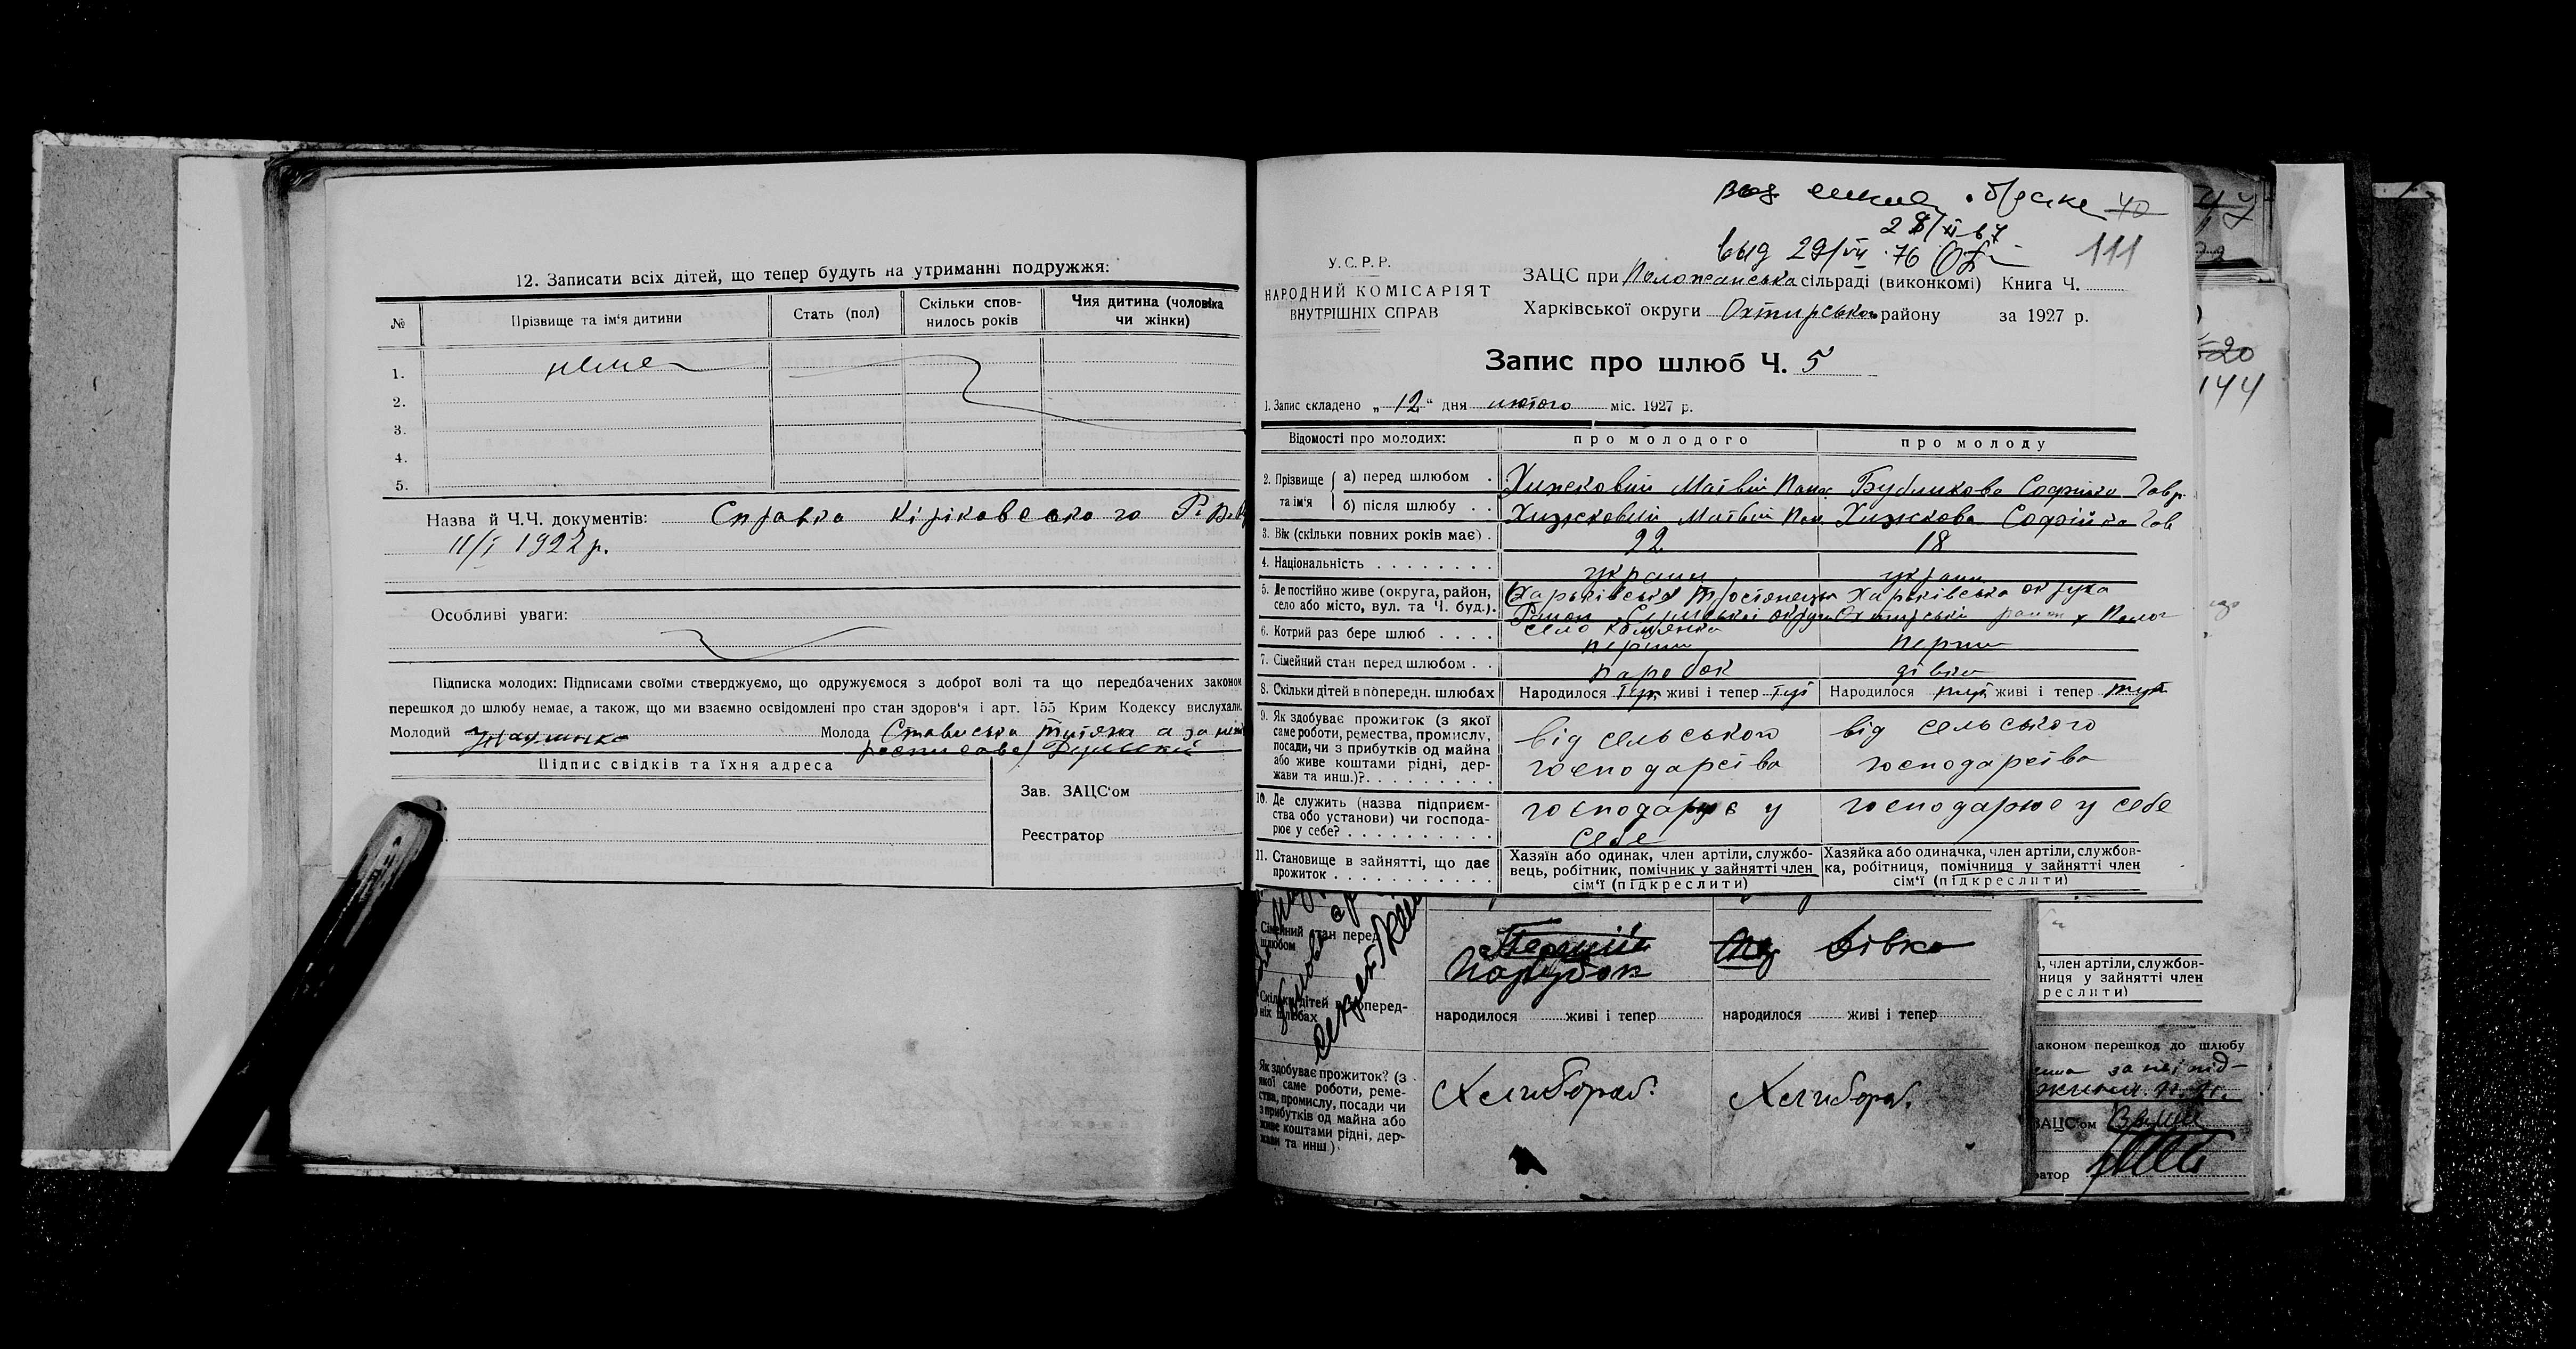 12. Записати всіх дітей, що тепер будуть на утриманні подружжя:
№ Прізвище та ім'я дитини Стать (пол) Скільки спов-нилось років Чия дитина (чоловіка чи жінки)
1. нема
2.
3.
4.
5.
Назва й Ч.Ч. документів: Справка Кіріковського Р.В.
11/I 1922 р.
Особливі уваги:
Підписка молодих: Підписами своїми стверджуємо, що одружуємося з доброї волі та що передбачених законом
перешкод до шлюбу немає, а також, що ми взаємно освідомлені про стан здоров'я і арт. 155 Крим Кодексу вислухали.
Молодий Молода Стависька Титяна а за неї
росписався
Підпис свідків та їхня адреса
Зав. ЗАЦС'ом
Реєстратор
40
28/XI-67
выд 29/VII 76
111
У.С.Р.Р.
НАРОДНИЙ КОМІСАРІЯТ
ВНУТРІШНІХ СПРАВ
ЗАЦС при Положанська сільраді (виконкомі) Книга Ч.
Харківської округи Охтирського району за 1927 р.
Запис про шлюб Ч. 5
1. Запис складено „12“ дня лютого міс. 1927 р.
Відомості про молодих: про молодого про молоду
2. Прізвище та ім'я
а) перед шлюбом . Хижковий Матвій Пана Бубликова Софійка Гавр.
б) після шлюбу . . Хижковий Матвій Пан Хижкова Софійка Гав
3. Вік (скільки повних років має) . 22 18
4. Національність . . . . . . . . украин украин
5. Де постійно живе (округа, район, село або місто, вул. та Ч. буд.). Харьківська Тростянець Район Сумської округи село Камянка Харьківська округа Охтирській район х Полог
6. Котрий раз бере шлюб . . . . перший перши
7. Сімейний стан перед шлюбом . . паробок дівка
8. Скільки дітей в попередн. шлюбах Народилося живі і тепер Народилося живі і тепер
9. Як здобуває прожиток (з якої саме роботи, ремества, промислу, посади, чи з прибутків од майна або живе коштами рідні, держави та инш.)?. від сельського господарства від сельського господарства
10. Де служить (назва підприєм-ства обо установи) чи господа-рює у себе? господарює у себе господарює у себе
11. Становище в зайнятті, що дає прожиток . . . Хазяїн або одинак, член артілі, службо-вець, робітник, помічник у зайнятті член сім'ї (підкреслити) Хазяйка або одиначка, член артілі, службов-ка, робітниця, помічниця у зайнятті член сім'ї (підкреслити)
Сімейний стан перед шлюбом Перший Парубок Дівка
Скільки дітей в поперед-ніх шлюбах народилося живі і тепер народилося живі і тепер
Як здобуває прожиток? (з якої саме роботи, реме-ства, промислу, посади чи з прибутків од майна або живе коштами рідні, дер-жави та инш) Хлибороб. Хлибороб.
47
20
144
, член артілі, службов-
ниця у зайнятті член
реслити)
аконом перешкод до шлюбу
за неї під-
ЗАЦС'ом
ратор